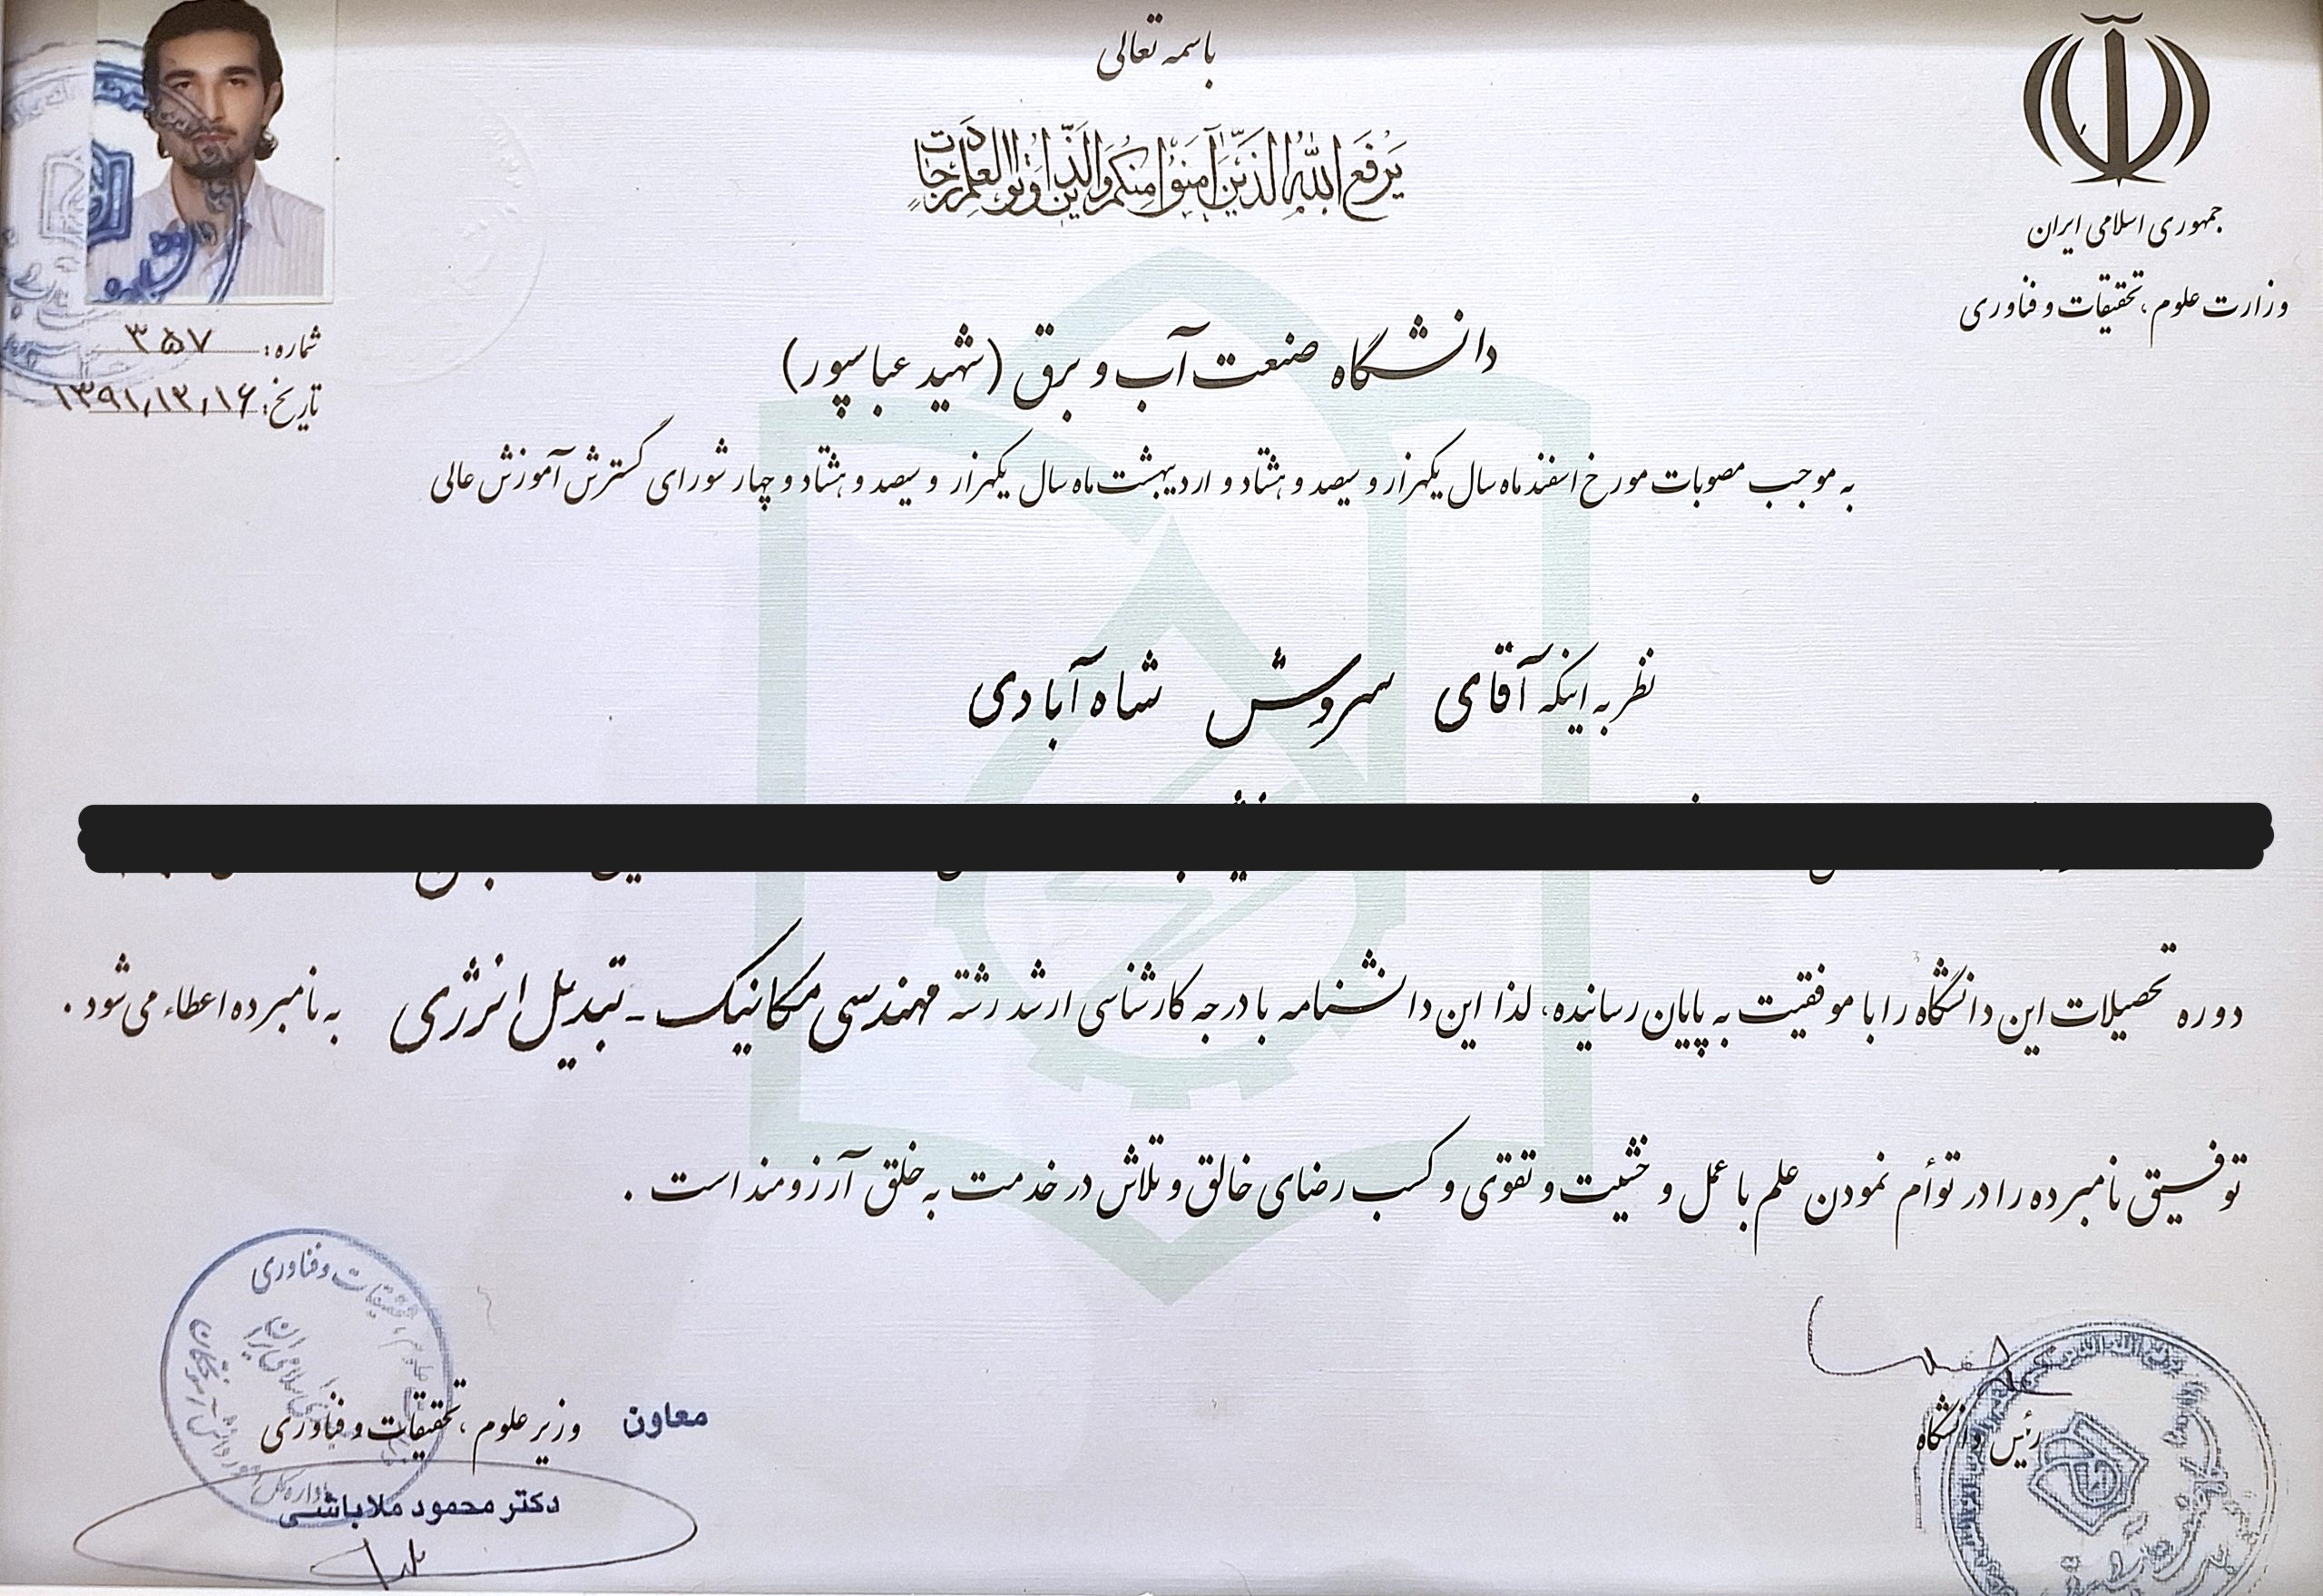 باسمه تعالی
یَرفَعِ اللهُ الَّذینَ آمَنُوا مِنکُم وَالَّذینَ اُوتُوا العِلمَ دَرَجاتٍ
جمهوری اسلامی ایران
وزارت علوم، تحقیقات و فناوری
شماره: ۳۵۷
تاریخ: ۱۳۹۱/۱۲/۱۶
دانشگاه صنعت آب و برق (شهید عباسپور)
به موجب مصوبات مورخ اسفند ماه سال یکهزار و سیصد و هشتاد و اردیبهشت ماه سال یکهزار و سیصد و هشتاد و چهار شورای گسترش آموزش عالی
نظر به اینکه آقای سروش شاه آبادی
دوره تحصیلات این دانشگاه را با موفقیت به پایان رسانیده، لذا این دانشنامه با درجه کارشناسی ارشد رشته مهندسی مکانیک - تبدیل انرژی به نامبرده اعطاء می شود.
توفیق نامبرده را در توأم نمودن علم با عمل و خشیت و تقوی و کسب رضای خالق و تلاش در خدمت به خلق آرزومند است.
رئیس دانشگاه
معاون وزیر علوم، تحقیقات و فناوری
دکتر محمود ملاباشی